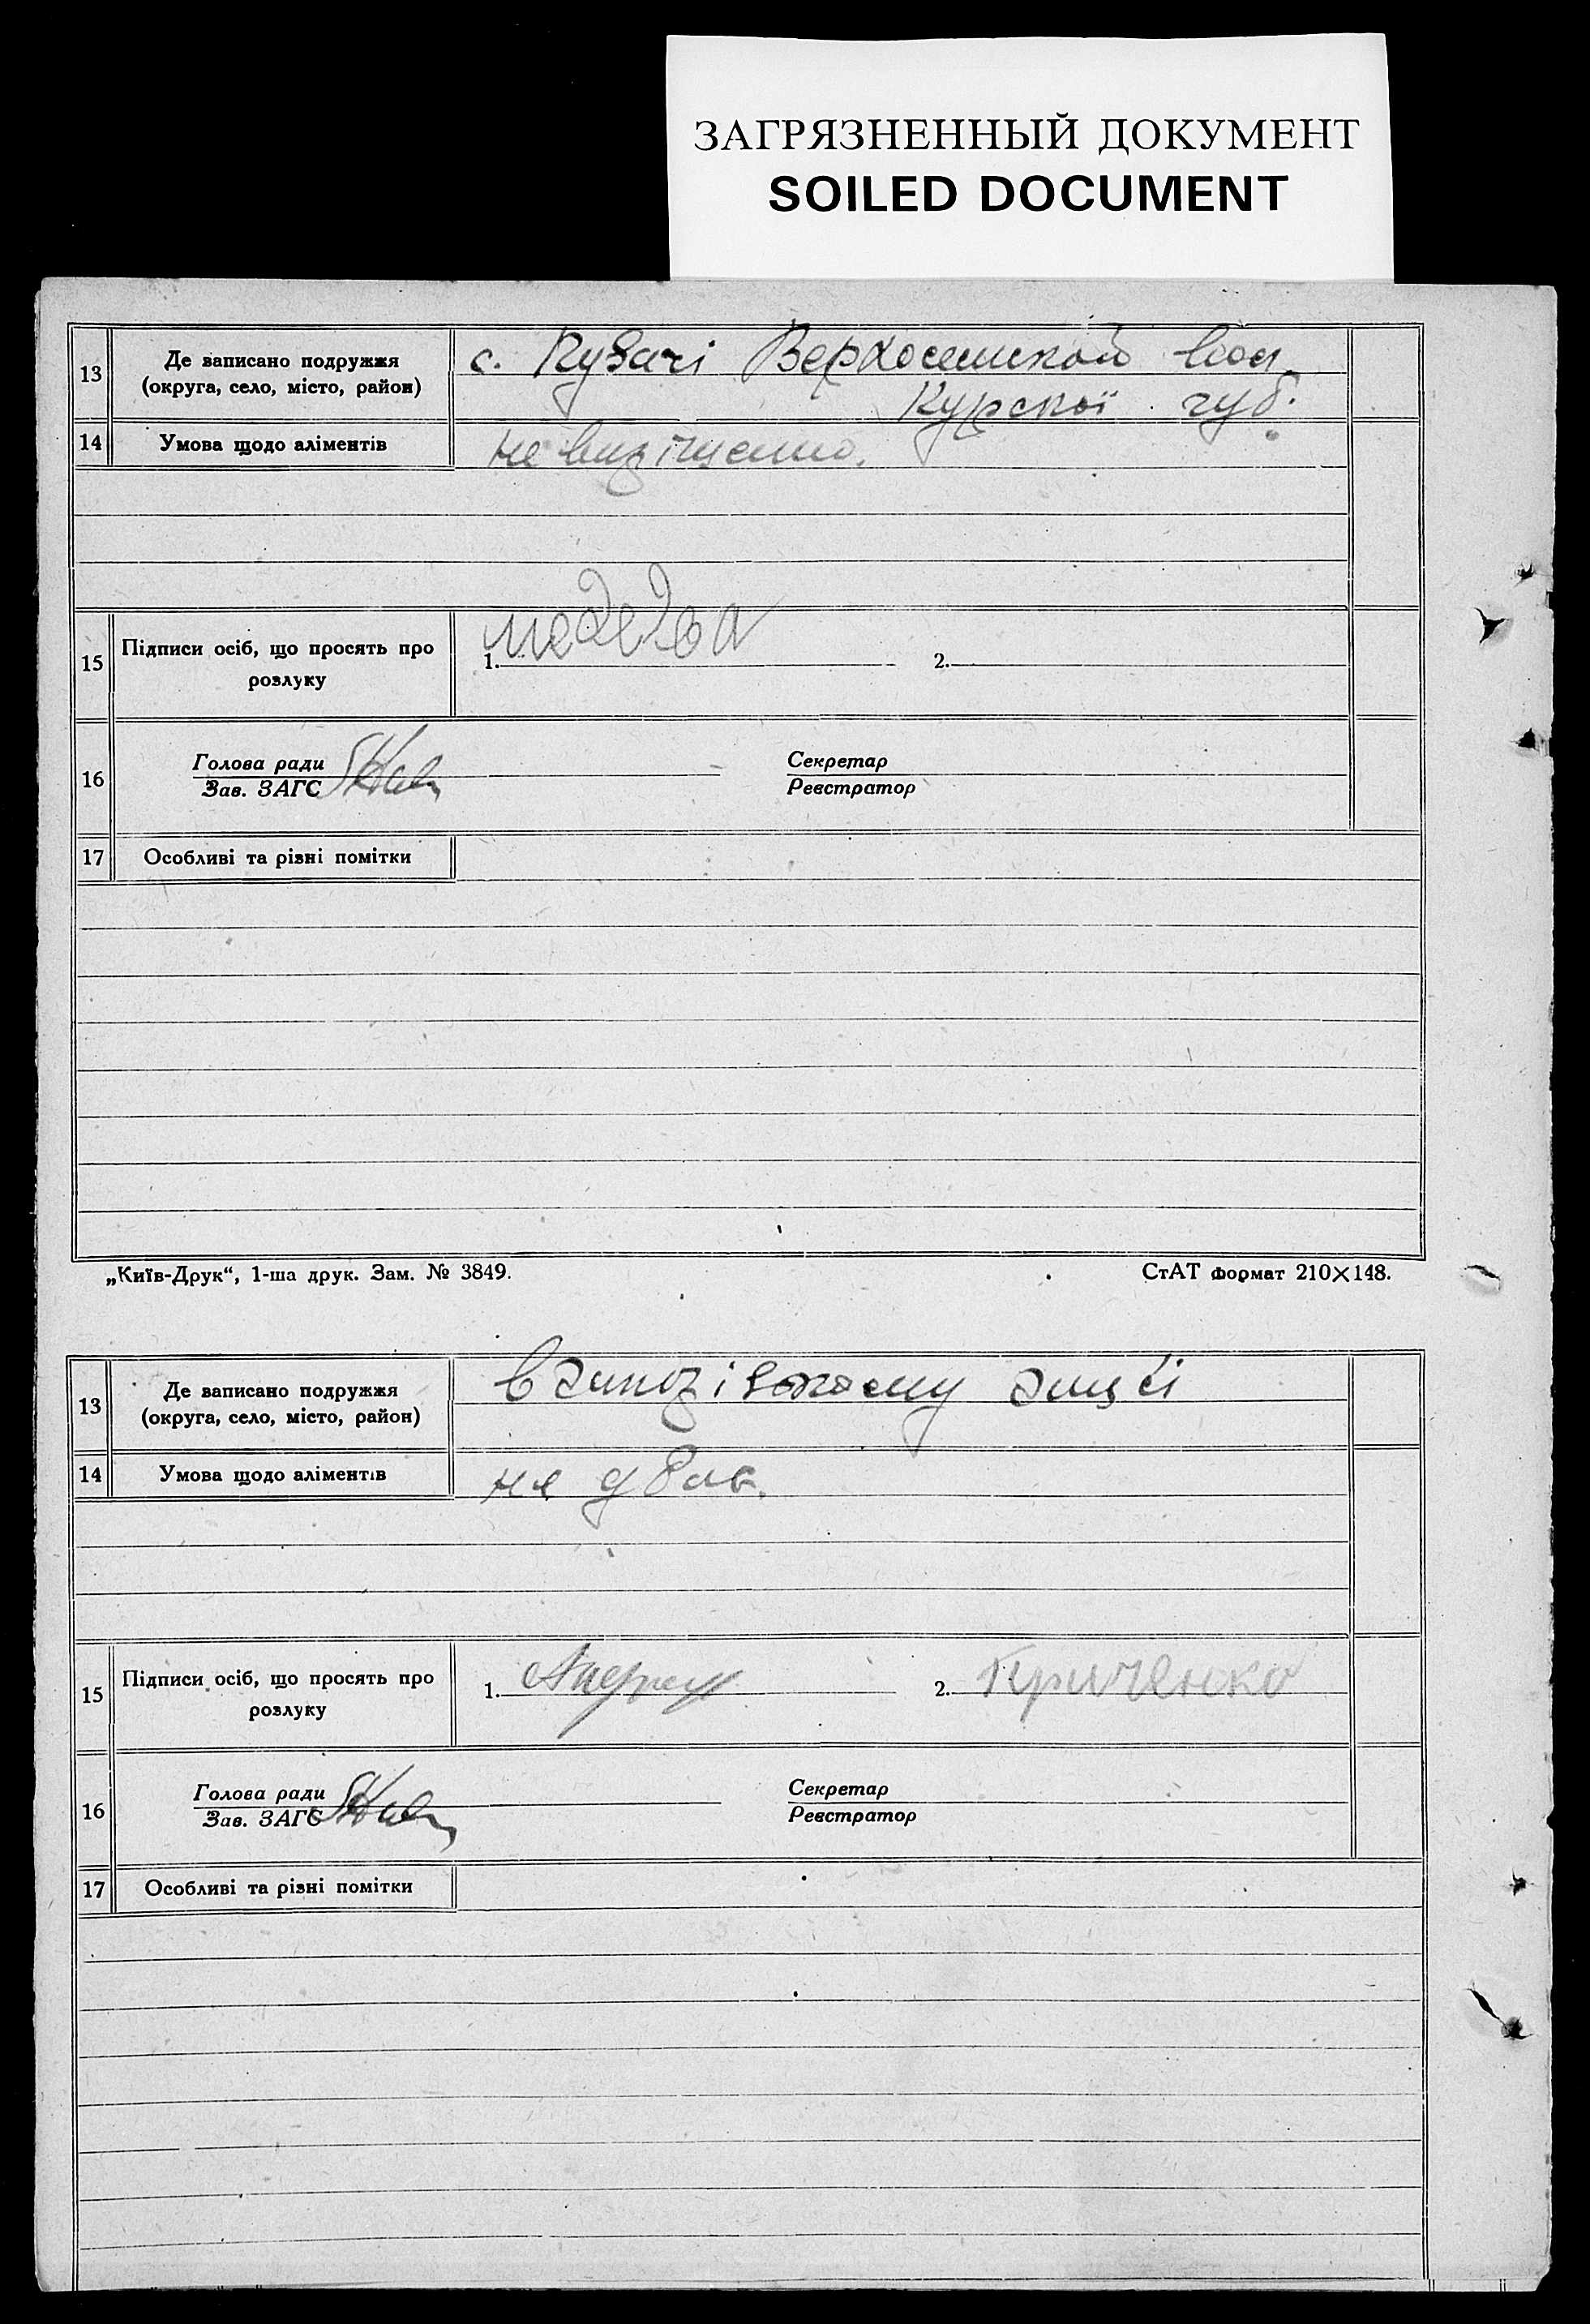 ЗАГРЯЗНЕННЫЙ ДОКУМЕНТ
SOILED DOCUMENT
13 Де записано подружжя (округа, село, місто, район)
с.
Курскої губ.
14 Умова щодо аліментів
не
15 Підписи осіб, що просять про розлуку
1. 2.
16 Голова ради Секретар
Зав. ЗАГС Реєстратор
17 Особливі та різні помітки
„Київ-Друк“, 1-ша друк. Зам. № 3849. СтАТ формат 210×148.
13 Де записано подружжя (округа, село, місто, район)
в
14 Умова щодо аліментів
не
15 Підписи осіб, що просять про розлуку
1. 2.
16 Голова ради Секретар
Зав. ЗАГС Реєстратор
17 Особливі та різні помітки